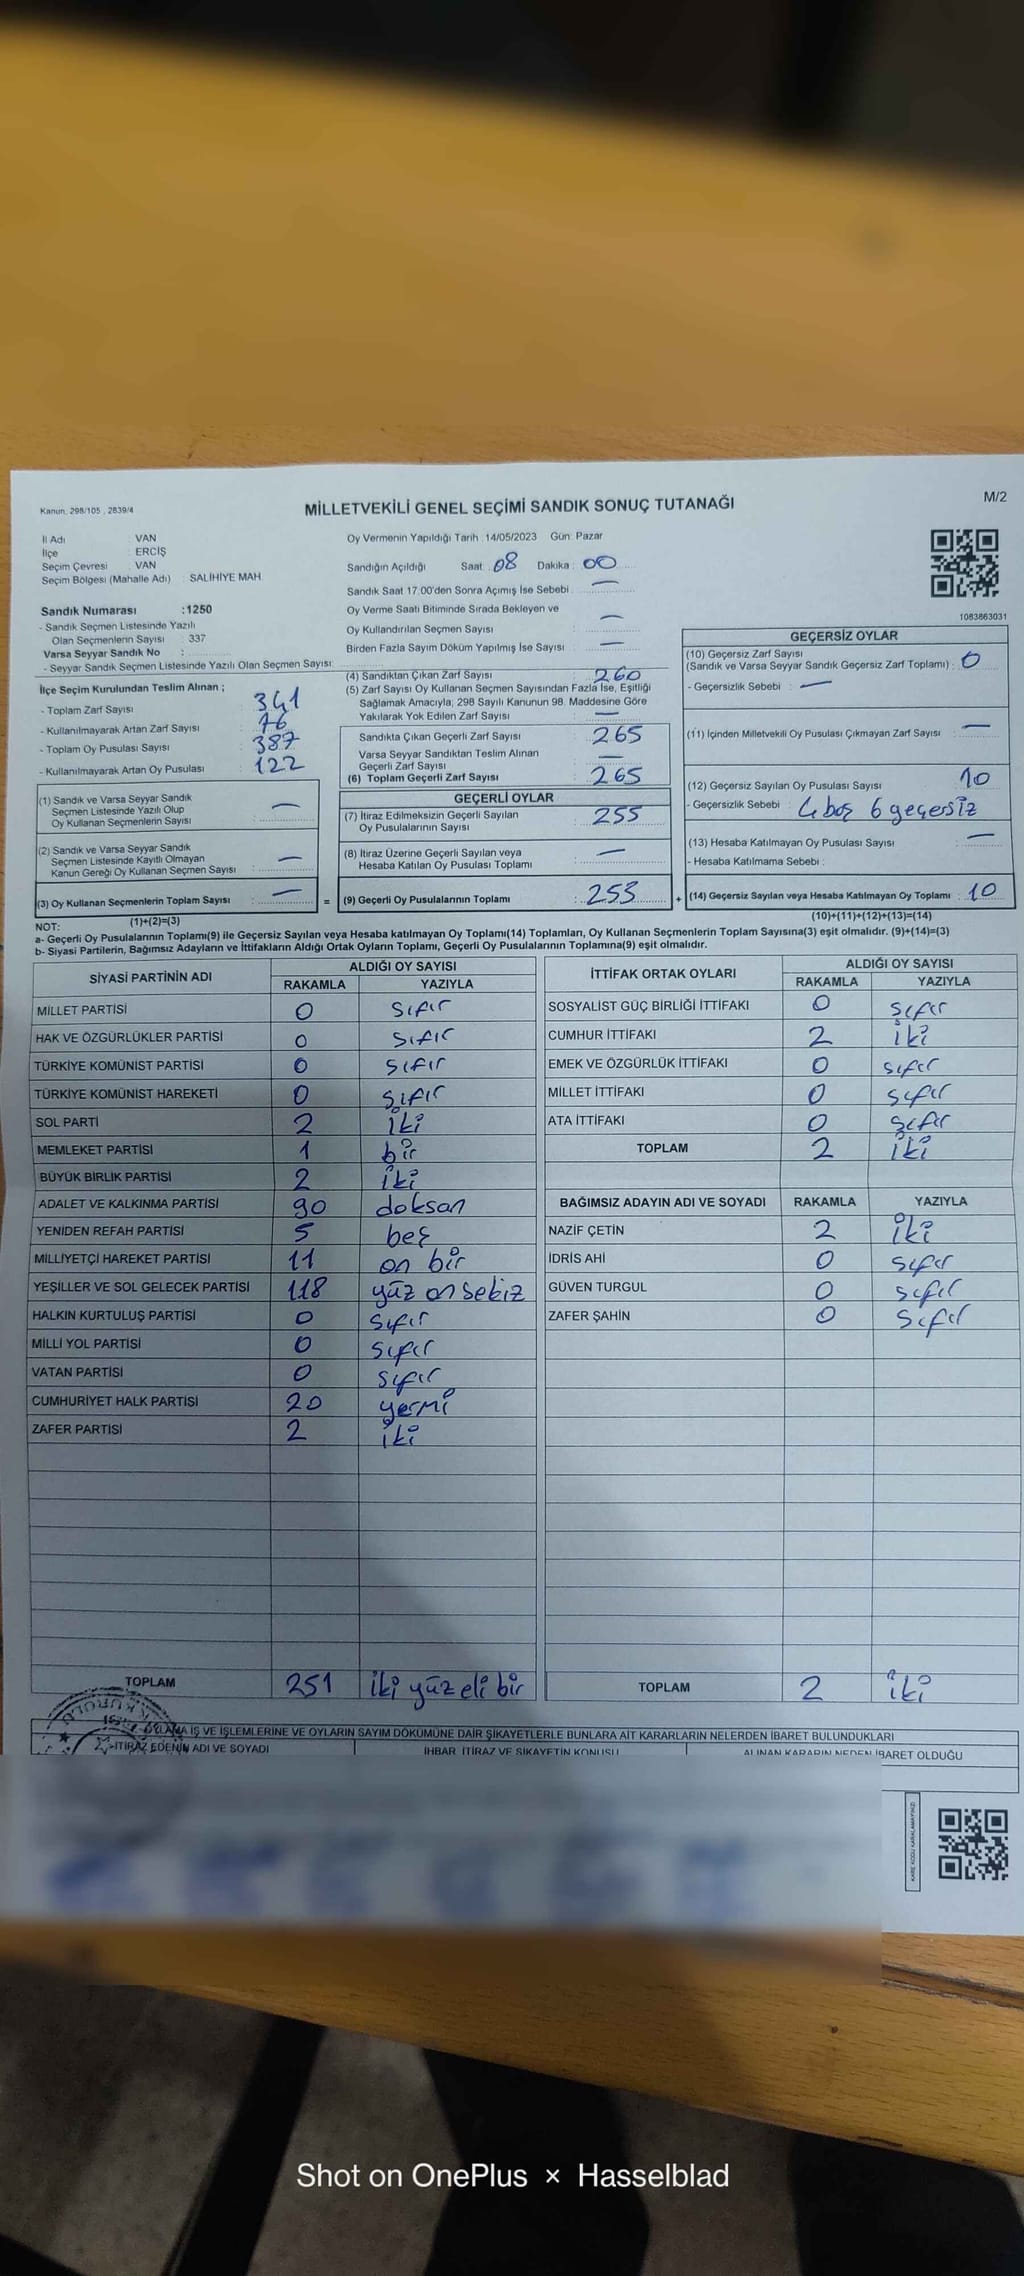 Kanun: 298/105 , 2839/4
MİLLETVEKİLİ GENEL SEÇİMİ SANDIK SONUÇ TUTANAĞI
M/2
İl Adı : VAN
İlçe : ERCİŞ
Seçim Çevresi : VAN
Seçim Bölgesi (Mahalle Adı) : SALİHİYE MAH.
Sandık Numarası :1250
- Sandık Seçmen Listesinde Yazılı
Olan Seçmenlerin Sayısı : 337
Varsa Seyyar Sandık No :
- Seyyar Sandık Seçmen Listesinde Yazılı Olan Seçmen Sayısı:
İlçe Seçim Kurulundan Teslim Alınan ;
- Toplam Zarf Sayısı : 341
- Kullanılmayarak Artan Zarf Sayısı : 76
- Toplam Oy Pusulası Sayısı : 387
- Kullanılmayarak Artan Oy Pusulası : 122
(1) Sandık ve Varsa Seyyar Sandık
Seçmen Listesinde Yazılı Olup
Oy Kullanan Seçmenlerin Sayısı : —
(2) Sandık ve Varsa Seyyar Sandık
Seçmen Listesinde Kayıtlı Olmayan
Kanun Gereği Oy Kullanan Seçmen Sayısı : —
(3) Oy Kullanan Seçmenlerin Toplam Sayısı : — =
(1)+(2)=(3)
Oy Vermenin Yapıldığı Tarih :14/05/2023 Gün: Pazar
Sandığın Açıldığı Saat: 08 Dakika : 00
Sandık Saat 17.00'den Sonra Açımış İse Sebebi : —
Oy Verme Saati Bitiminde Sırada Bekleyen ve
Oy Kullandırılan Seçmen Sayısı : —
Birden Fazla Sayım Döküm Yapılmış İse Sayısı : —
(4) Sandıktan Çıkan Zarf Sayısı : 260
(5) Zarf Sayısı Oy Kullanan Seçmen Sayısından Fazla İse, Eşitliği
Sağlamak Amacıyla, 298 Sayılı Kanunun 98. Maddesine Göre
Yakılarak Yok Edilen Zarf Sayısı : —
Sandıkta Çıkan Geçerli Zarf Sayısı : 265
Varsa Seyyar Sandıktan Teslim Alınan
Geçerli Zarf Sayısı : —
(6) Toplam Geçerli Zarf Sayısı : 265
GEÇERLİ OYLAR
(7) İtiraz Edilmeksizin Geçerli Sayılan
Oy Pusulalarının Sayısı : 255
(8) İtiraz Üzerine Geçerli Sayılan veya
Hesaba Katılan Oy Pusulası Toplamı : —
(9) Geçerli Oy Pusulalarının Toplamı : 253 +
1083863031
GEÇERSİZ OYLAR
(10) Geçersiz Zarf Sayısı
(Sandık ve Varsa Seyyar Sandık Geçersiz Zarf Toplamı) : 0
- Geçersizlik Sebebi : —
(11) İçinden Milletvekili Oy Pusulası Çıkmayan Zarf Sayısı : —
(12) Geçersiz Sayılan Oy Pusulası Sayısı : 10
- Geçersizlik Sebebi : 4 boş 6 geçersiz
(13) Hesaba Katılmayan Oy Pusulası Sayısı : —
- Hesaba Katılmama Sebebi :
(14) Geçersiz Sayılan veya Hesaba Katılmayan Oy Toplamı : 10
(10)+(11)+(12)+(13)=(14)
NOT:
a- Geçerli Oy Pusulalarının Toplamı(9) ile Geçersiz Sayılan veya Hesaba katılmayan Oy Toplamı(14) Toplamları, Oy Kullanan Seçmenlerin Toplam Sayısına(3) eşit olmalıdır. (9)+(14)=(3)
b- Siyasi Partilerin, Bağımsız Adayların ve İttifakların Aldığı Ortak Oyların Toplamı, Geçerli Oy Pusulalarının Toplamına(9) eşit olmalıdır.
SİYASİ PARTİNİN ADI ALDIĞI OY SAYISI
RAKAMLA YAZIYLA
MİLLET PARTİSİ 0 sıfır
HAK VE ÖZGÜRLÜKLER PARTİSİ 0 sıfır
TÜRKİYE KOMÜNİST PARTİSİ 0 sıfır
TÜRKİYE KOMÜNİST HAREKETİ 0 sıfır
SOL PARTİ 2 iki
MEMLEKET PARTİSİ 1 bir
BÜYÜK BİRLİK PARTİSİ 2 iki
ADALET VE KALKINMA PARTİSİ 90 doksan
YENİDEN REFAH PARTİSİ 5 beş
MİLLİYETÇİ HAREKET PARTİSİ 11 on bir
YEŞİLLER VE SOL GELECEK PARTİSİ 118 yüz on sekiz
HALKIN KURTULUŞ PARTİSİ 0 sıfır
MİLLİ YOL PARTİSİ 0 sıfır
VATAN PARTİSİ 0 sıfır
CUMHURİYET HALK PARTİSİ 20 yermi
ZAFER PARTİSİ 2 iki
TOPLAM 251 iki yüz eli bir
İTTİFAK ORTAK OYLARI ALDIĞI OY SAYISI
RAKAMLA YAZIYLA
SOSYALİST GÜÇ BİRLİĞİ İTTİFAKI 0 sıfır
CUMHUR İTTİFAKI 2 iki
EMEK VE ÖZGÜRLÜK İTTİFAKI 0 sıfır
MİLLET İTTİFAKI 0 sıfır
ATA İTTİFAKI 0 sıfır
TOPLAM 2 iki
BAĞIMSIZ ADAYIN ADI VE SOYADI RAKAMLA YAZIYLA
NAZİF ÇETİN 2 iki
İDRİS AHİ 0 sıfır
GÜVEN TURGUL 0 sıfır
ZAFER ŞAHİN 0 sıfır
TOPLAM 2 iki
İŞ VE İŞLEMLERİNE VE OYLARIN SAYIM DÖKÜMÜNE DAİR ŞİKAYETLERLE BUNLARA AİT KARARLARIN NELERDEN İBARET BULUNDUKLARI
İTİRAZ EDENİN ADI VE SOYADI
İHBAR, İTİRAZ VE ŞİKAYETİN KONUSU
ALINAN KARARIN NEDEN İBARET OLDUĞU
Shot on OnePlus × Hasselblad